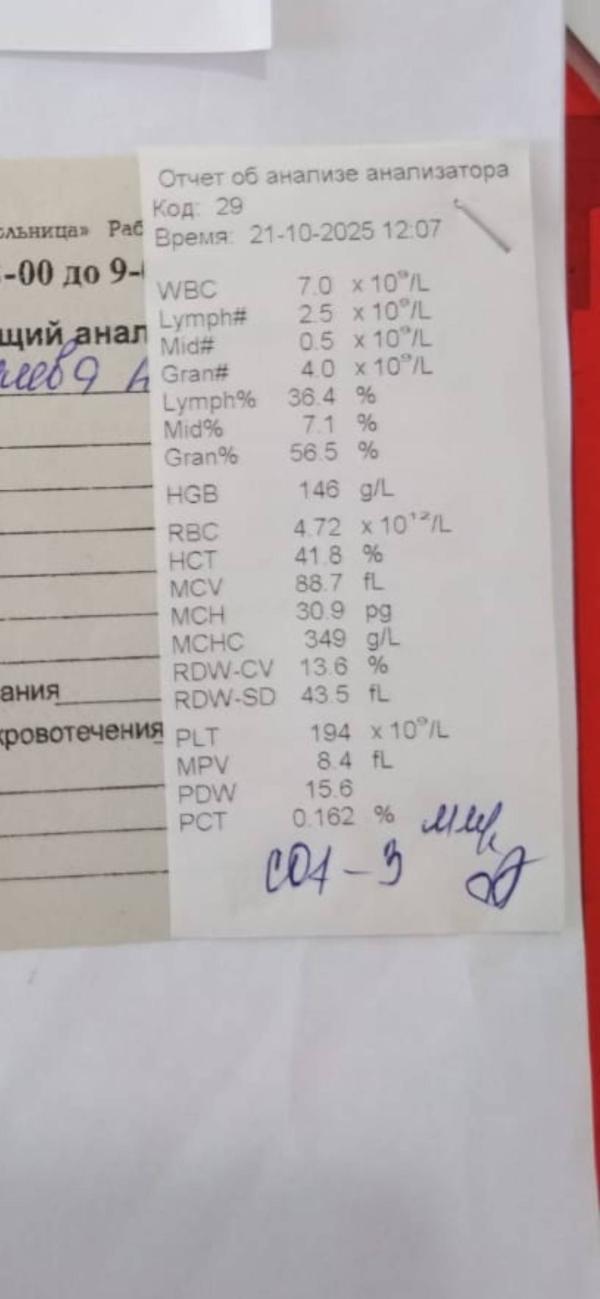 Отчет об анализе анализатора
Код: 29
Время: 21-10-2025 12:07
WBC 7.0 x 10⁹/L
Lymph# 2.5 x 10⁹/L
Mid# 0.5 x 10⁹/L
Gran# 4.0 x 10⁹/L
Lymph% 36.4 %
Mid% 7.1 %
Gran% 56.5 %
HGB 146 g/L
RBC 4.72 x 10¹²/L
HCT 41.8 %
MCV 88.7 fL
MCH 30.9 pg
MCHC 349 g/L
RDW-CV 13.6 %
RDW-SD 43.5 fL
PLT 194 x 10⁹/L
MPV 8.4 fL
PDW 15.6
PCT 0.162 %
СОЭ – 3
ольница» Раб
-00 до 9-
щий анал
ания
кровотечения